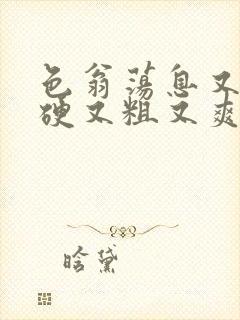 色翁荡息又
硬又粗又爽
晗黛